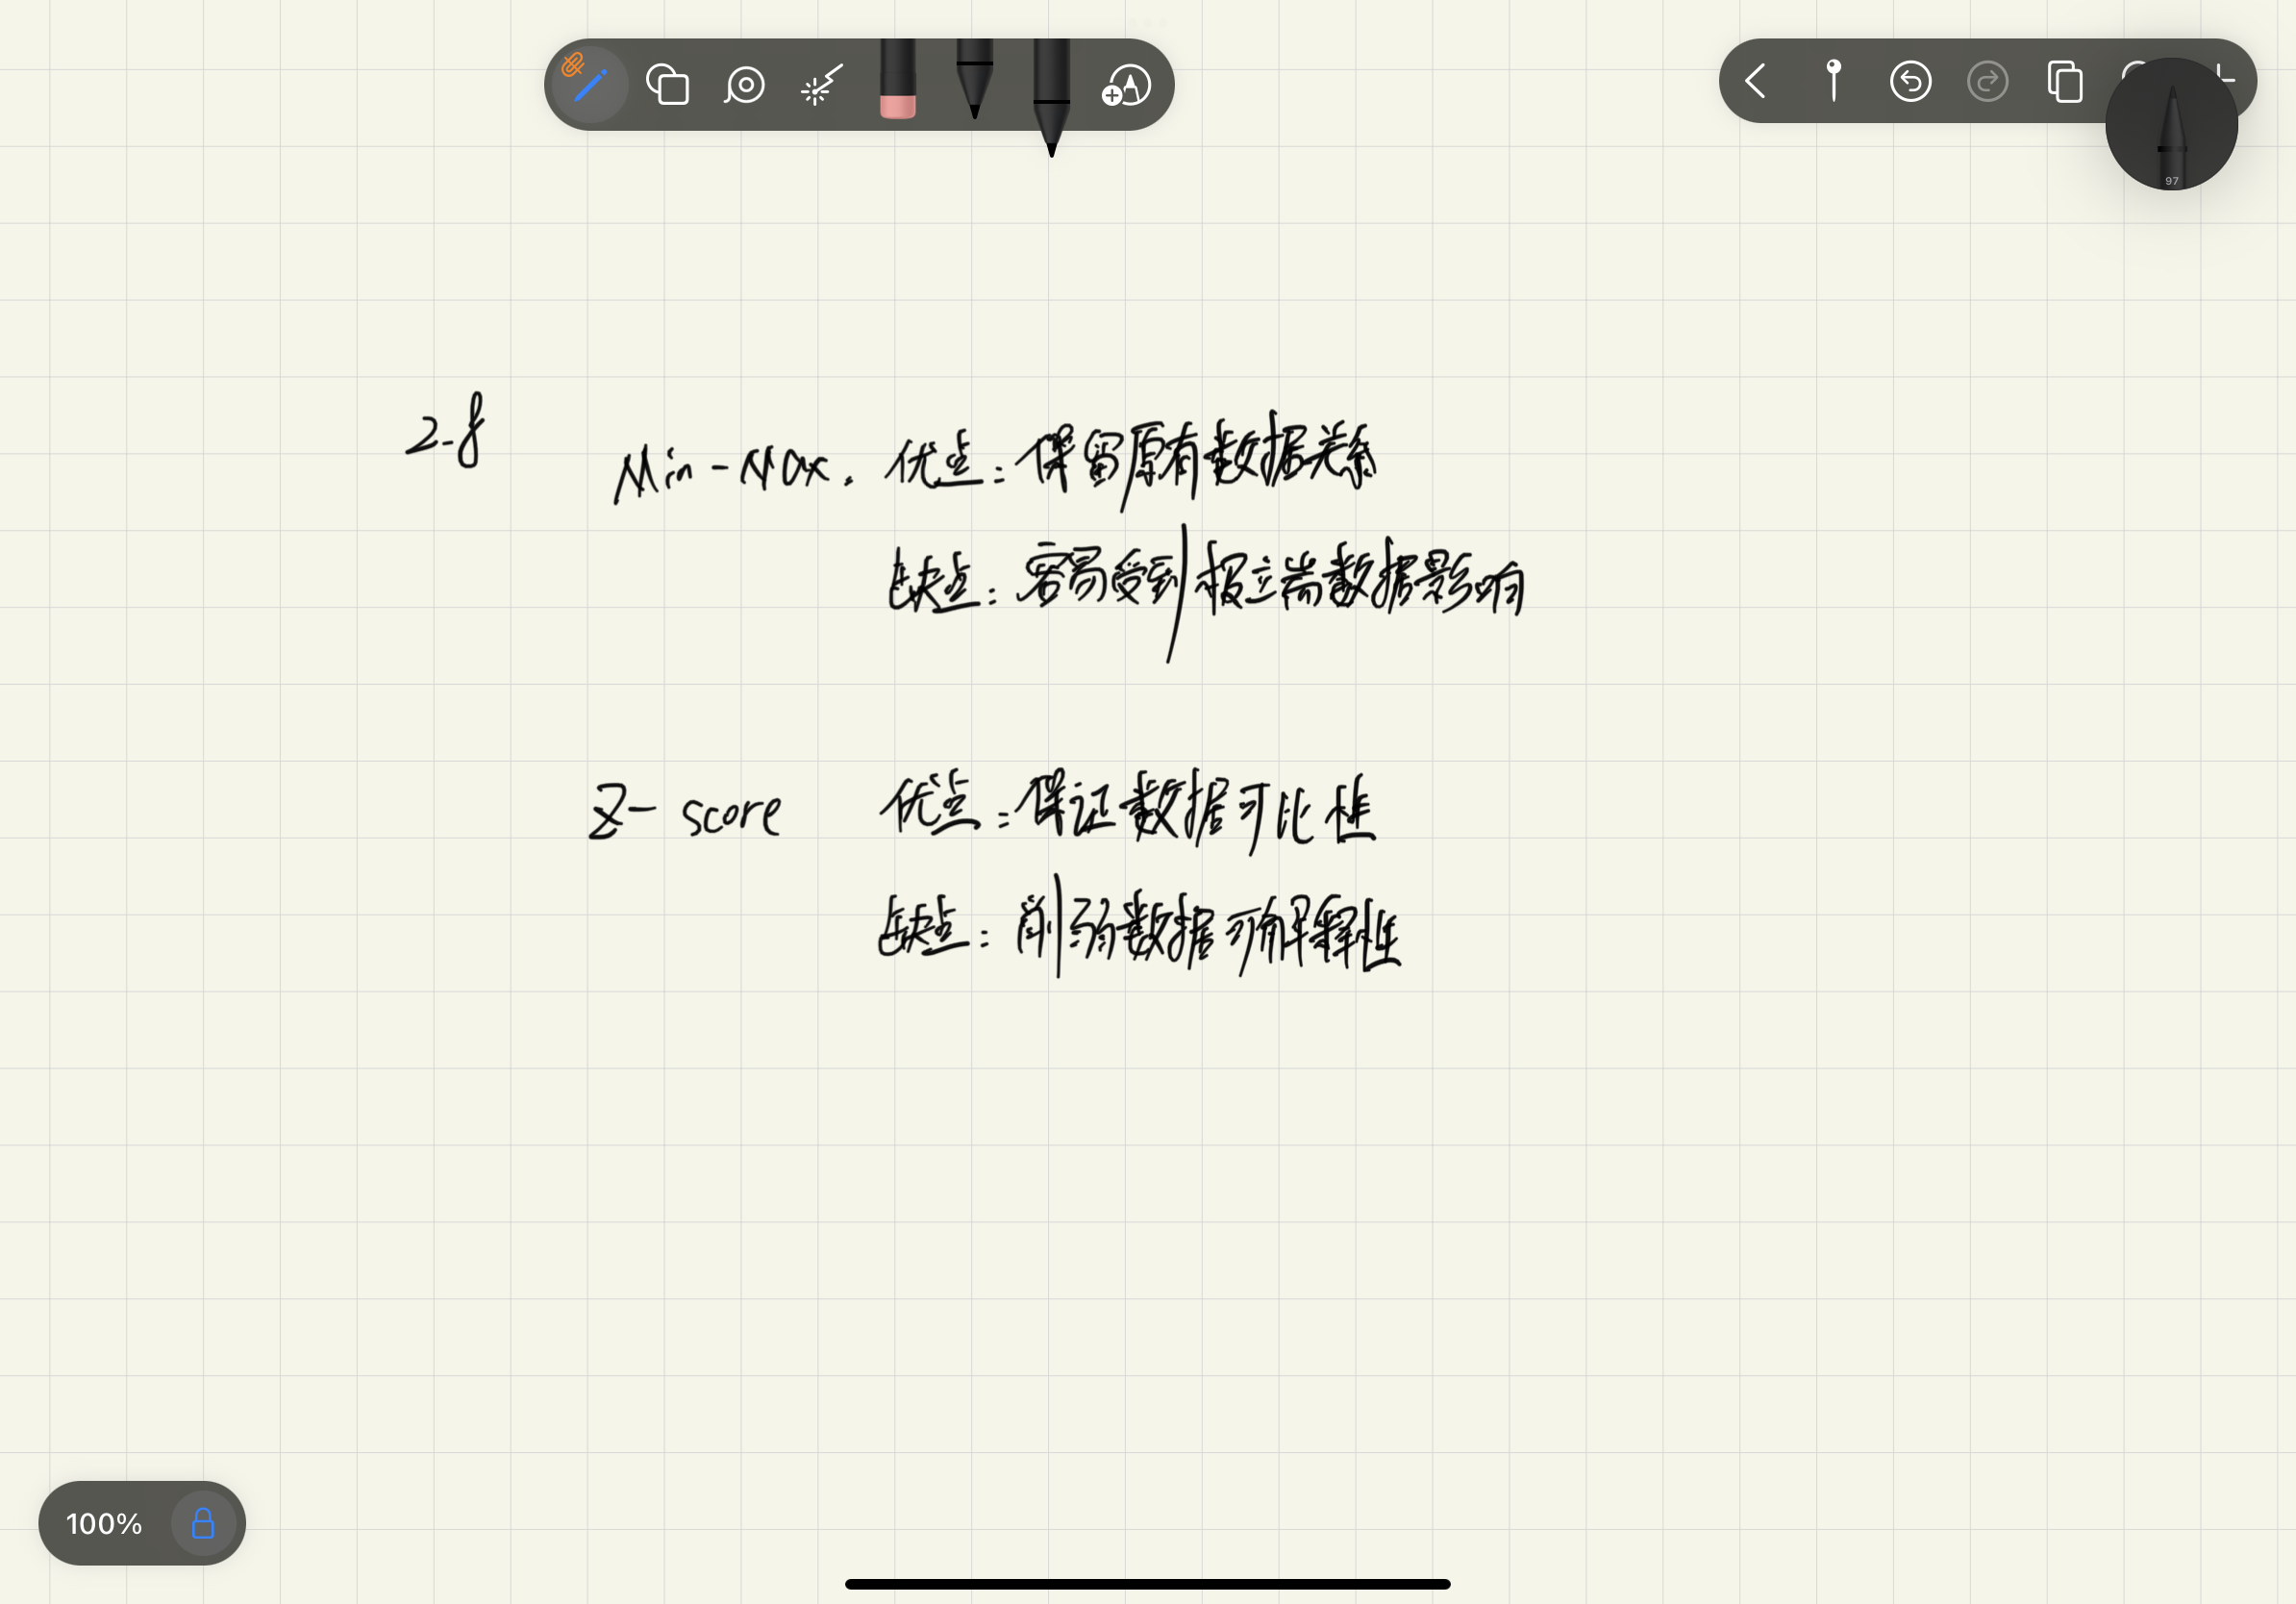 97
2-8
Min-Max. 优点：保留原有数据关系
缺点：容易受到极端数据影响
Z-score 优点：保证数据可比性
缺点：削弱数据可解释性
100%